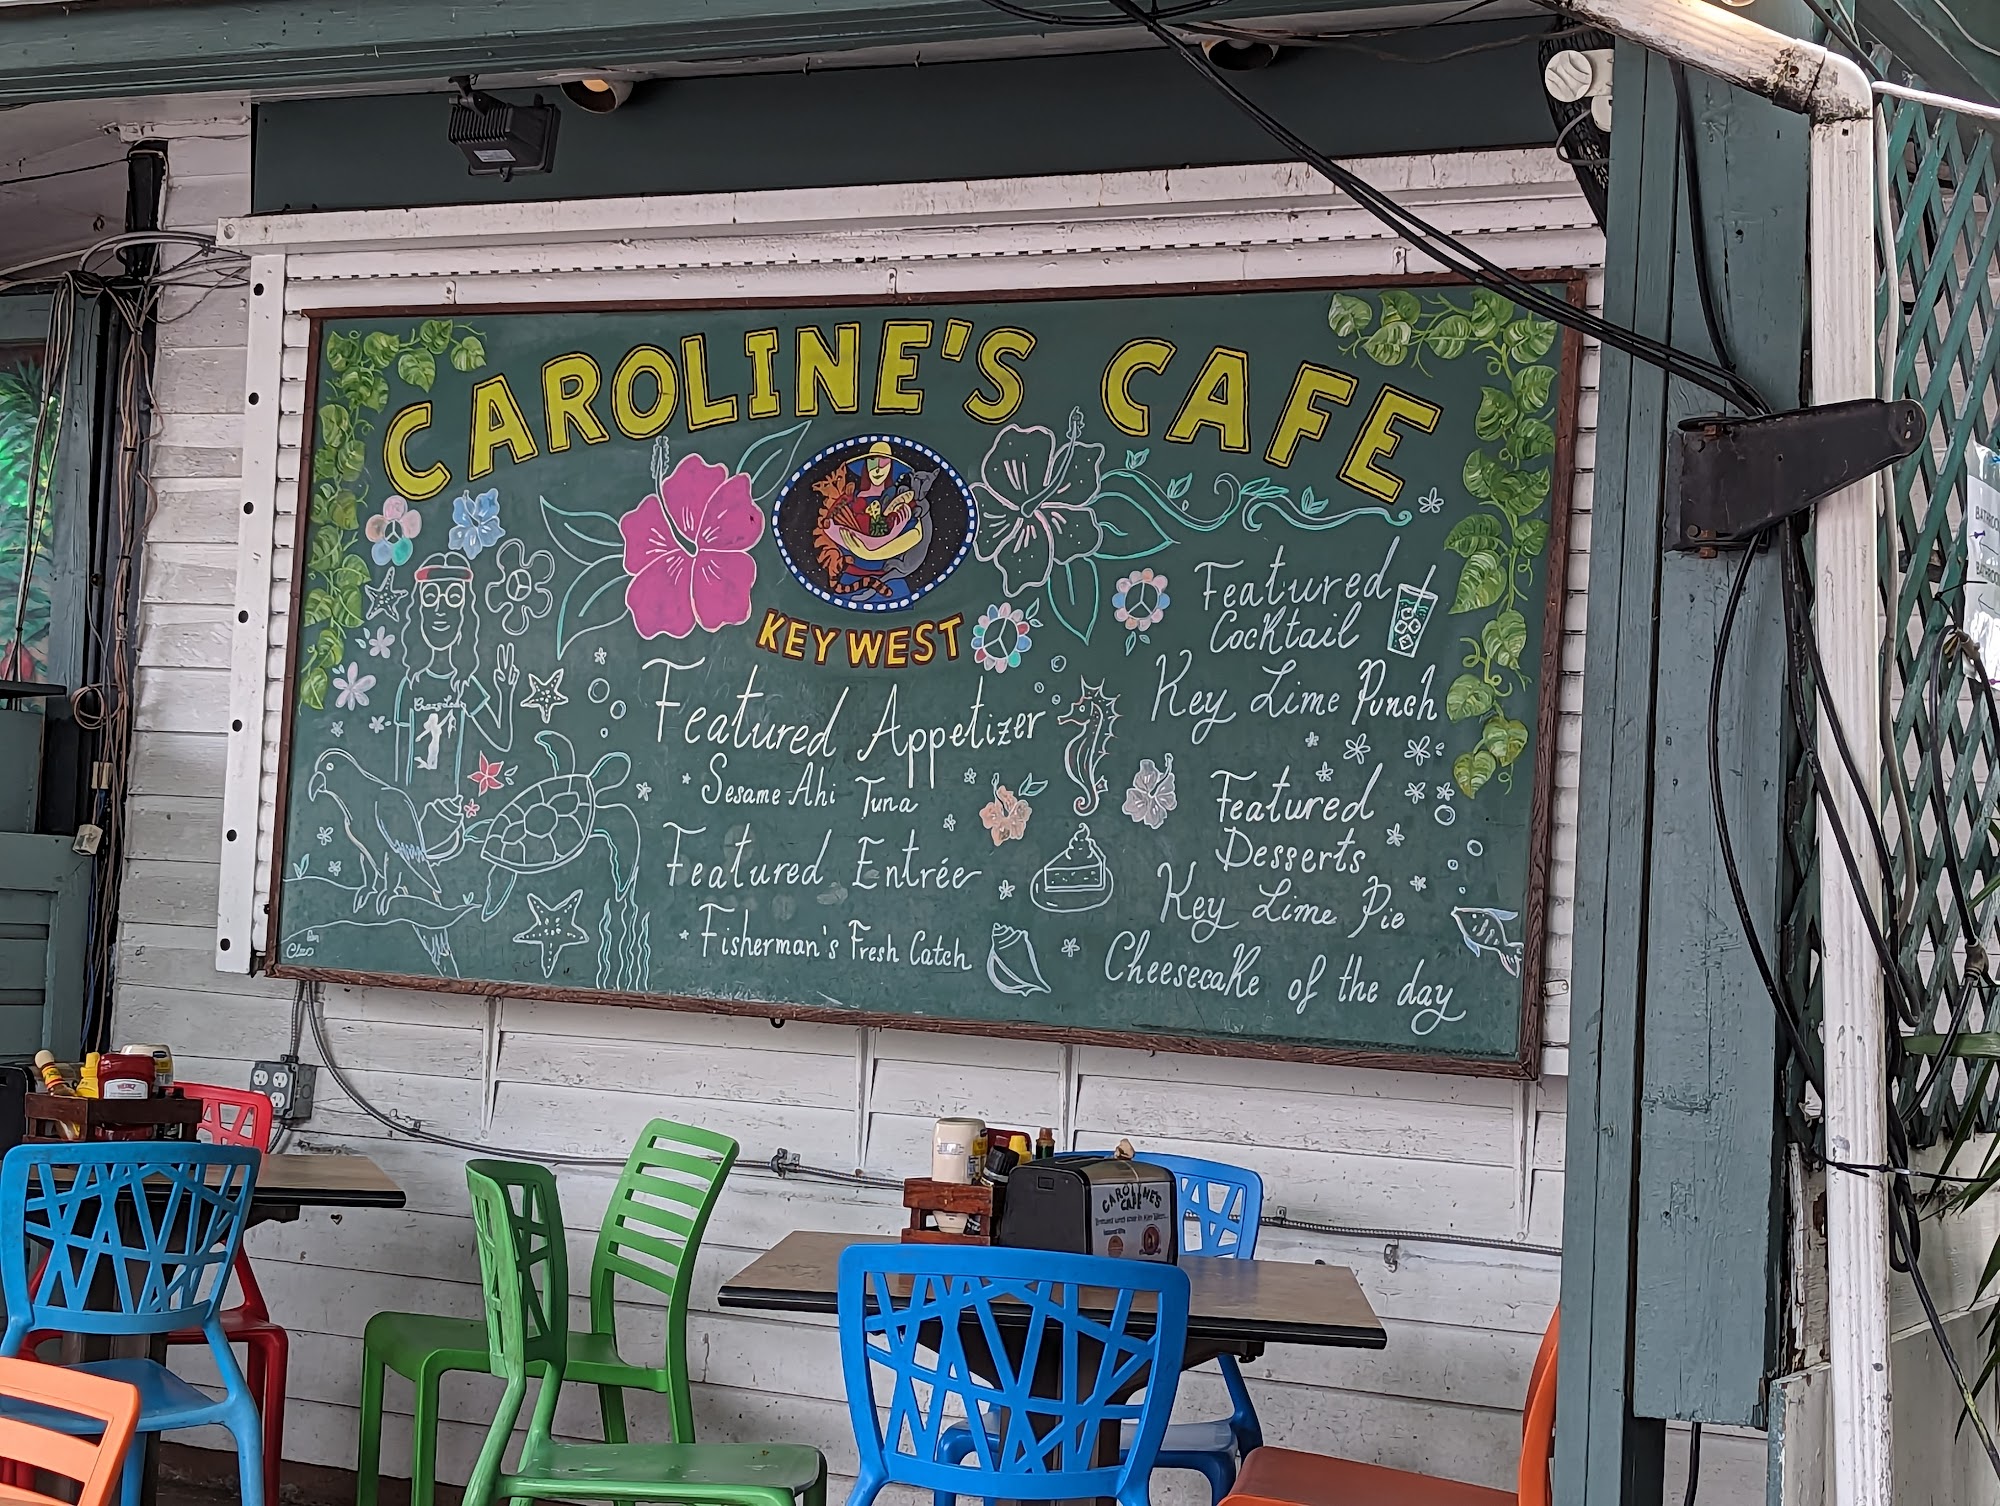 CAROLINE'S CAFE
KEY WEST
Featured Appetizer
* Sesame Ahi Tuna
Featured Entrée
* Fisherman's Fresh Catch
Featured
Cocktail
Key Lime Punch
Featured
Desserts
Key Lime Pie
Cheesecake of the day
HEINZ
CAROLINE'S
CAFE